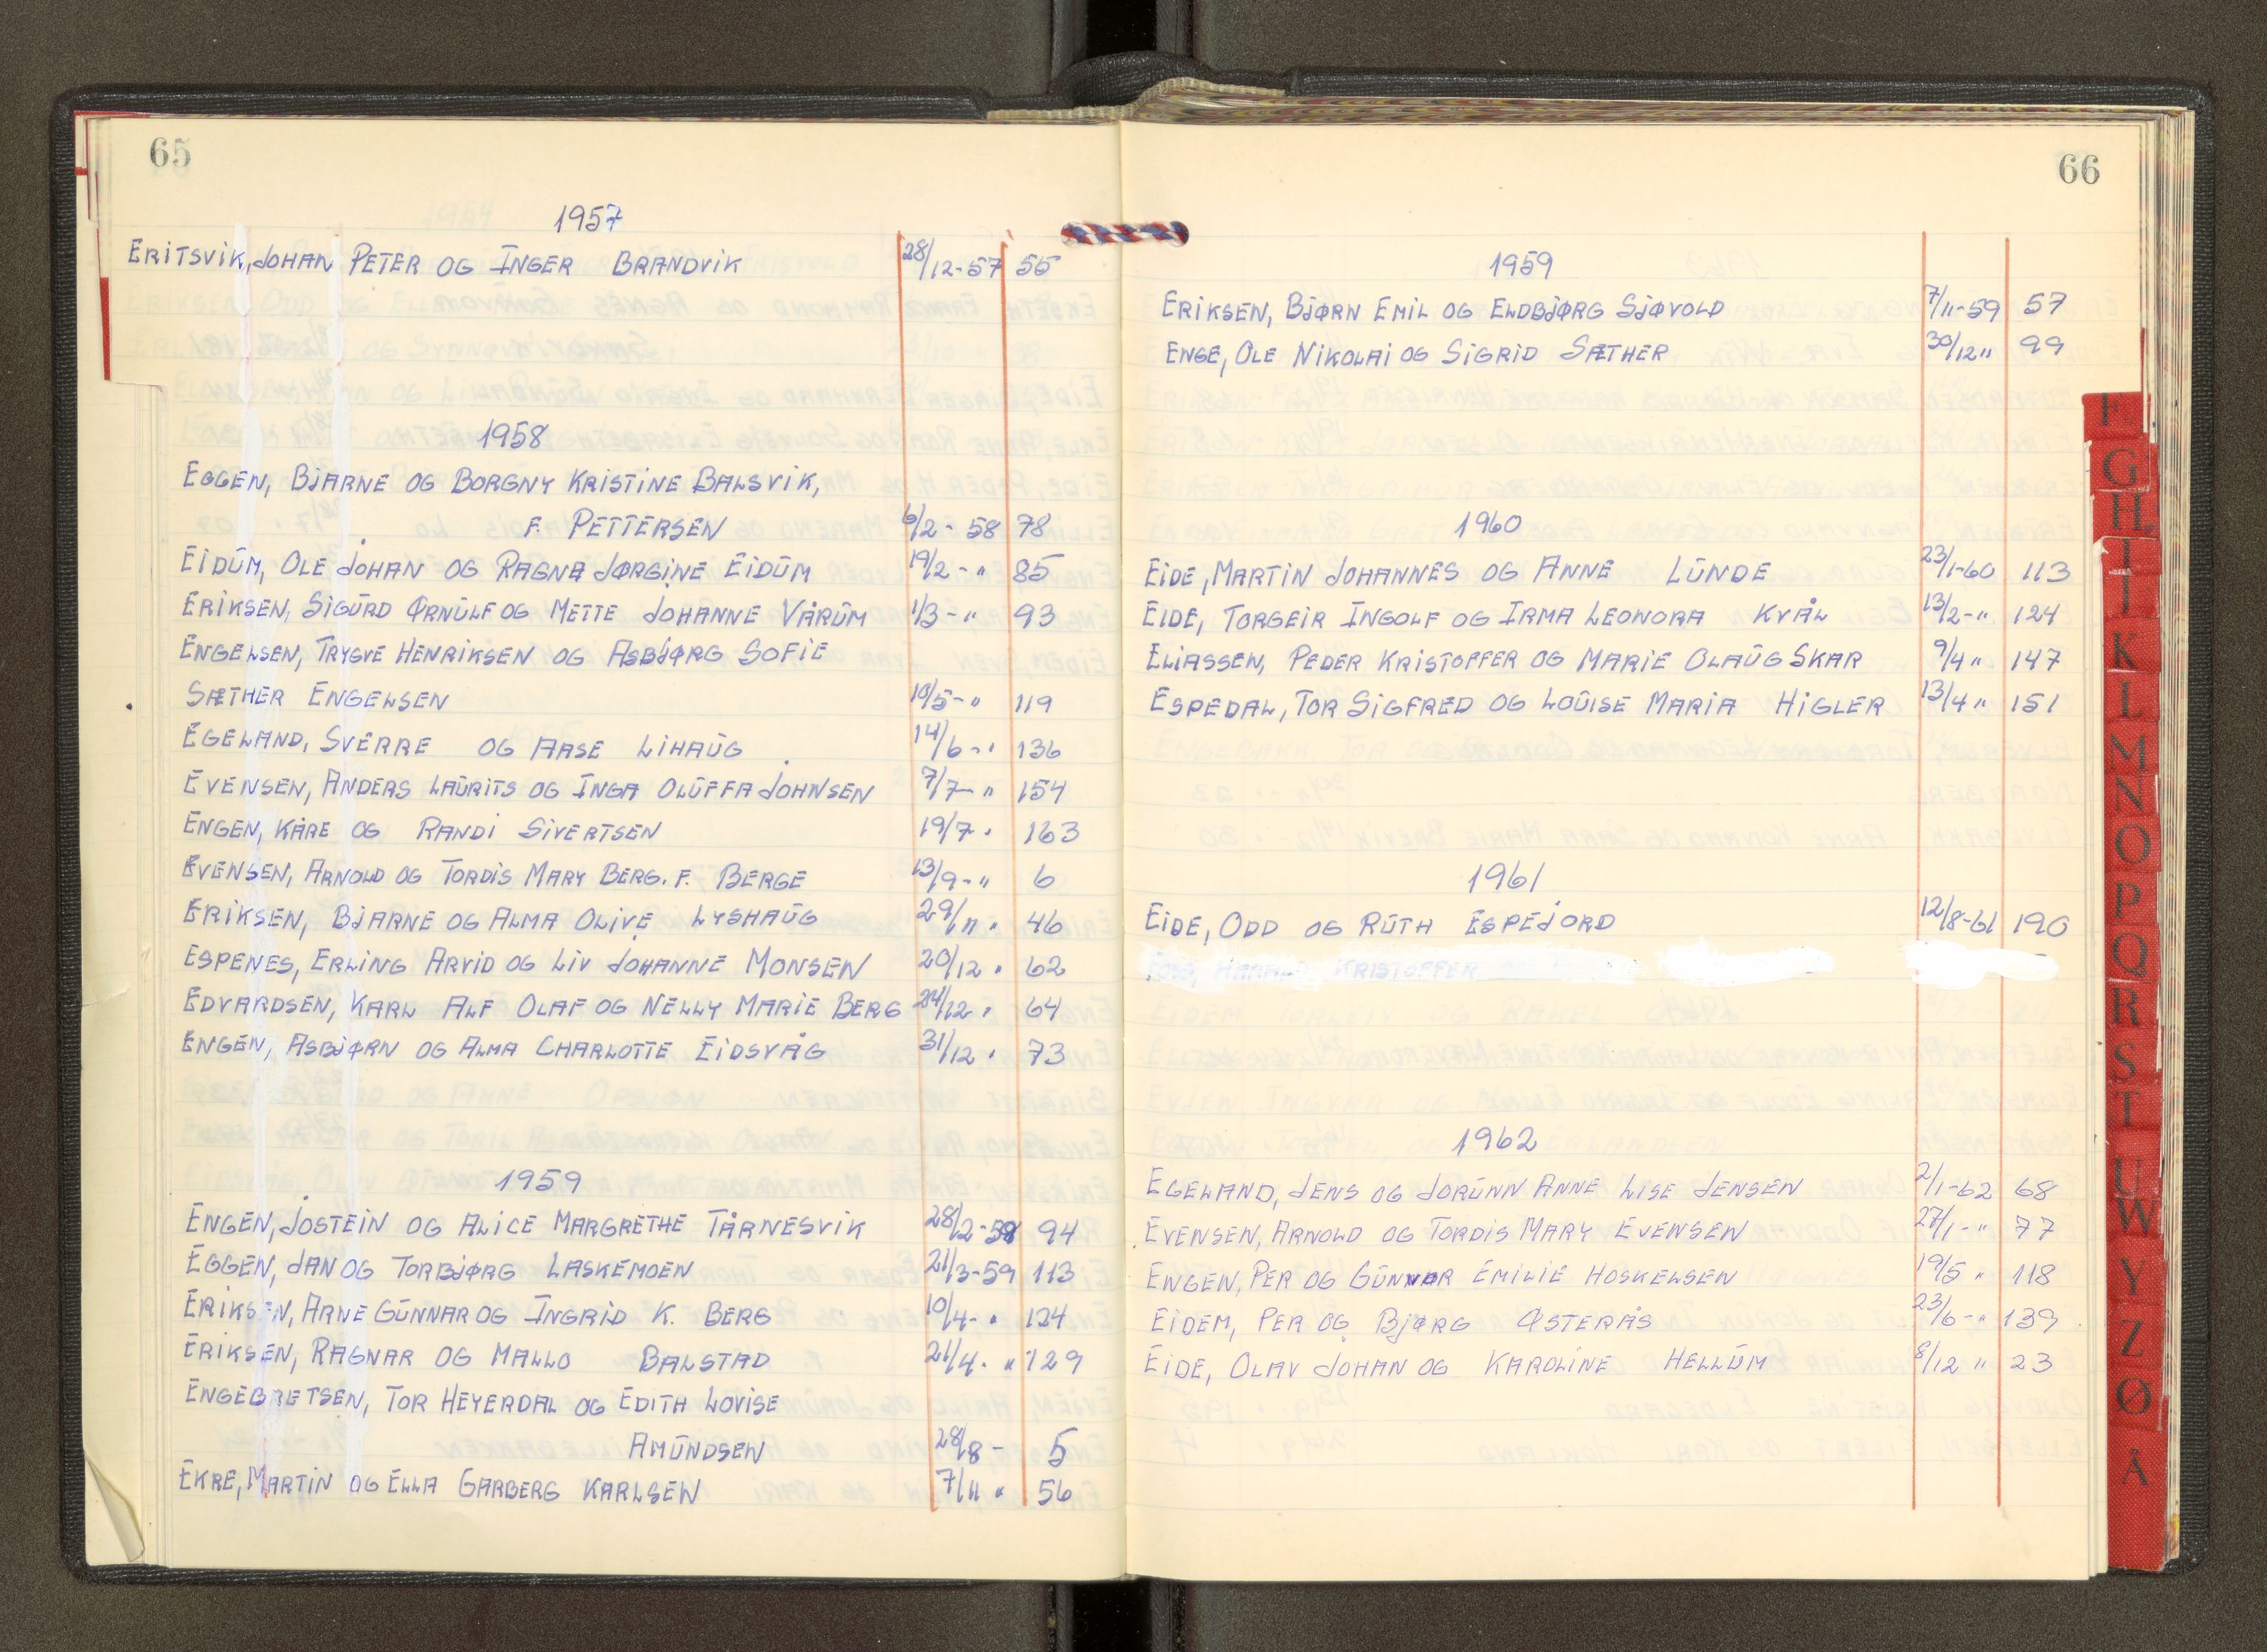 65
1957
ERITSVIK, JOHAN PETER OG INGER BRANDVIK 28/12-57 55
1958
EGGEN, BJARNE OG BORGNY KRISTINE BALSVIK,
F. PETTERSEN 6/2-58 78
EIDŪM, OLE JOHAN OG RAGNA JØRGINE EIDŪM 19/2-" 85
ERIKSEN, SIGŪRD ØRNŪLF OG METTE JOHANNE VÅRŪM 1/3-" 93
ENGELSEN, TRYGVE HENRIKSEN OG ASBJØRG SOFIE
SÆTHER ENGELSEN 10/5-" 119
EGELAND, SVERRE OG AASE LIHAŪG 14/6-" 136
EVENSEN, ANDERS LAŪRITS OG INGA OLŪFFA JOHNSEN 7/7-" 154
ENGEN, KÅRE OG RANDI SIVERTSEN 19/7 " 163
EVENSEN, ARNOLD OG TORDIS MARY BERG. F. BERGE 13/9-" 6
ERIKSEN, BJARNE OG ALMA OLIVE LYSHAŪG 29/11 " 46
ESPENES, ERLING ARVID OG LIV JOHANNE MONSEN 20/12 " 62
EDVARDSEN, KARL ALF OLAF OG NELLY MARIE BERG 24/12 " 64
ENGEN, ASBJØRN OG ALMA CHARLOTTE EIDSVÅG 31/12 " 73
1959
ENGEN, JOSTEIN OG ALICE MARGRETHE TÅRNESVIK 28/2-59 94
EGGEN, JAN OG TORBJØRG LASKEMOEN 21/3-59 113
ERIKSEN, ARNE GŪNNAR OG INGRID K. BERG 10/4-" 124
ERIKSEN, RAGNAR OG MALLO BALSTAD 21/4. " 129
ENGEBRETSEN, TOR HEYERDAL OG EDITH LOVISE
AMŪNDSEN 28/8- 5
EKRE, MARTIN OG ELLA GARBERG KARLSEN 7/11 " 56
66
1959
ERIKSEN, BJØRN EMIL OG ELDBJØRG SJØVOLD 7/11-59 57
ENGE, OLE NIKOLAI OG SIGRID SÆTHER 30/12 " 99
1960
EIDE, MARTIN JOHANNES OG ANNE LŪNDE 23/1-60 113
EIDE, TORGEIR INGOLF OG IRMA LEONORA KVÅL 13/2-" 124
ELIASSEN, PEDER KRISTOFFER OG MARIE OLAŪG SKAR 9/4 " 147
ESPEDAL, TOR SIGFRED OG LOŪISE MARIA HIGLER 13/4 " 151
1961
EIDE, ODD OG RŪTH ESPEJORD 12/8-61 190
KRISTOFFER
1962
EGELAND, JENS OG JORŪNN ANNE LISE JENSEN 2/1-62 68
EVENSEN, ARNOLD OG TORDIS MARY EVENSEN 27/1-" 77
ENGEN, PER OG GŪNVOR EMILIE HOSKELSEN 19/5 " 118
EIDEM, PER OG BJØRG ØSTERÅS 23/6-" 139
EIDE, OLAV JOHAN OG KAROLINE HELLŪM 8/12 " 23
F
G
H
I
J
K
L
M
N
O
P
Q
R
S
T
U
W
Y
Z
Ø
Å